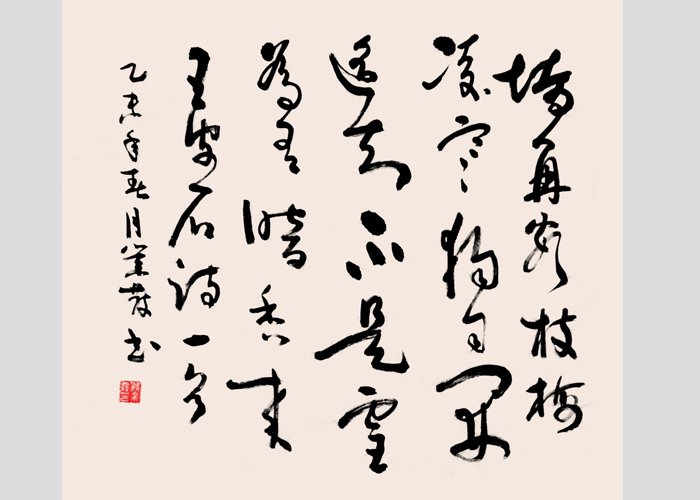 墙角数枝梅
凌寒独自开
遥知不是雪
为有暗香来
王安石诗一首
乙未年春月书